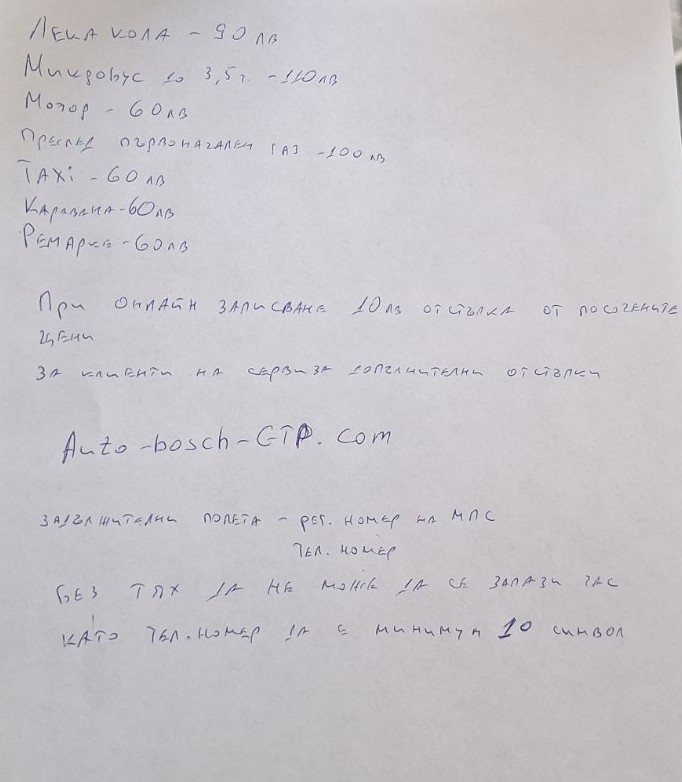 Лека кола - 90 лв
Микробус до 3,5т. - 110лв
Мотор - 60лв
Преглед първоначален газ - 100 лв
Taxi - 60 лв
Каравана - 60лв
Ремарке - 60лв
При онлайн записване 10лв отстъпка от посочените
цени
за клиенти на сервиза допълнителни отстъпки
Auto-bosch-GTP.com
задължителни полета - рег. номер на МПС
тел. номер
без тях да не може да се запази час
като тел. номер да е минимум 10 символ